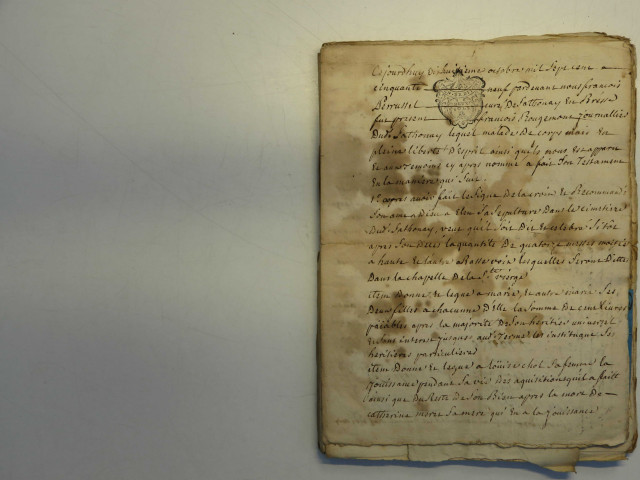 Cejourdhuy dixhuitieme octobre mil sept cent
cinquante neuf pardevant nous françois
Perrusset cure De Sathonay En Bresse
fut present françois Rougemont journallier
Dud. Sathonay lequel malade De corps mais En
pleine liberté D'esprit ainsi qu'il nous Est apparu
& aux Temoins cy apres nommé a fait Son Testament
En la maniere qui Suit
apres avoir fait le Signe De la croix & Recommandé
Son ame a Dieu a Elu Sa Sepulture Dans le cimetiere
Dud. Sathonay, veut qu'il Soit Dit & celebré Sitôt
apres Son Deces la quantité De quatorze messes
à haute & l'autre a Basse voix lesquelles Seront Dittes
Dans la chapelle De la Ste vierge
item Donne & legue a marie, & autre marie Ses
Deux filles a chacune D'elle la Somme De cent livres
païables apres la majorité De Son heritier universel
& Sans interest jusques aud. Terme les instituant Ses
heritieres particulieres
item Donne & legue a Loüise chol Sa femme la
Joüissance pendant Sa vie Des aquisitions qu'il a faitt
ainsi que Du Reste De Son Bien apres la mort De
catherine morel Sa mere qui En a la Joüissance